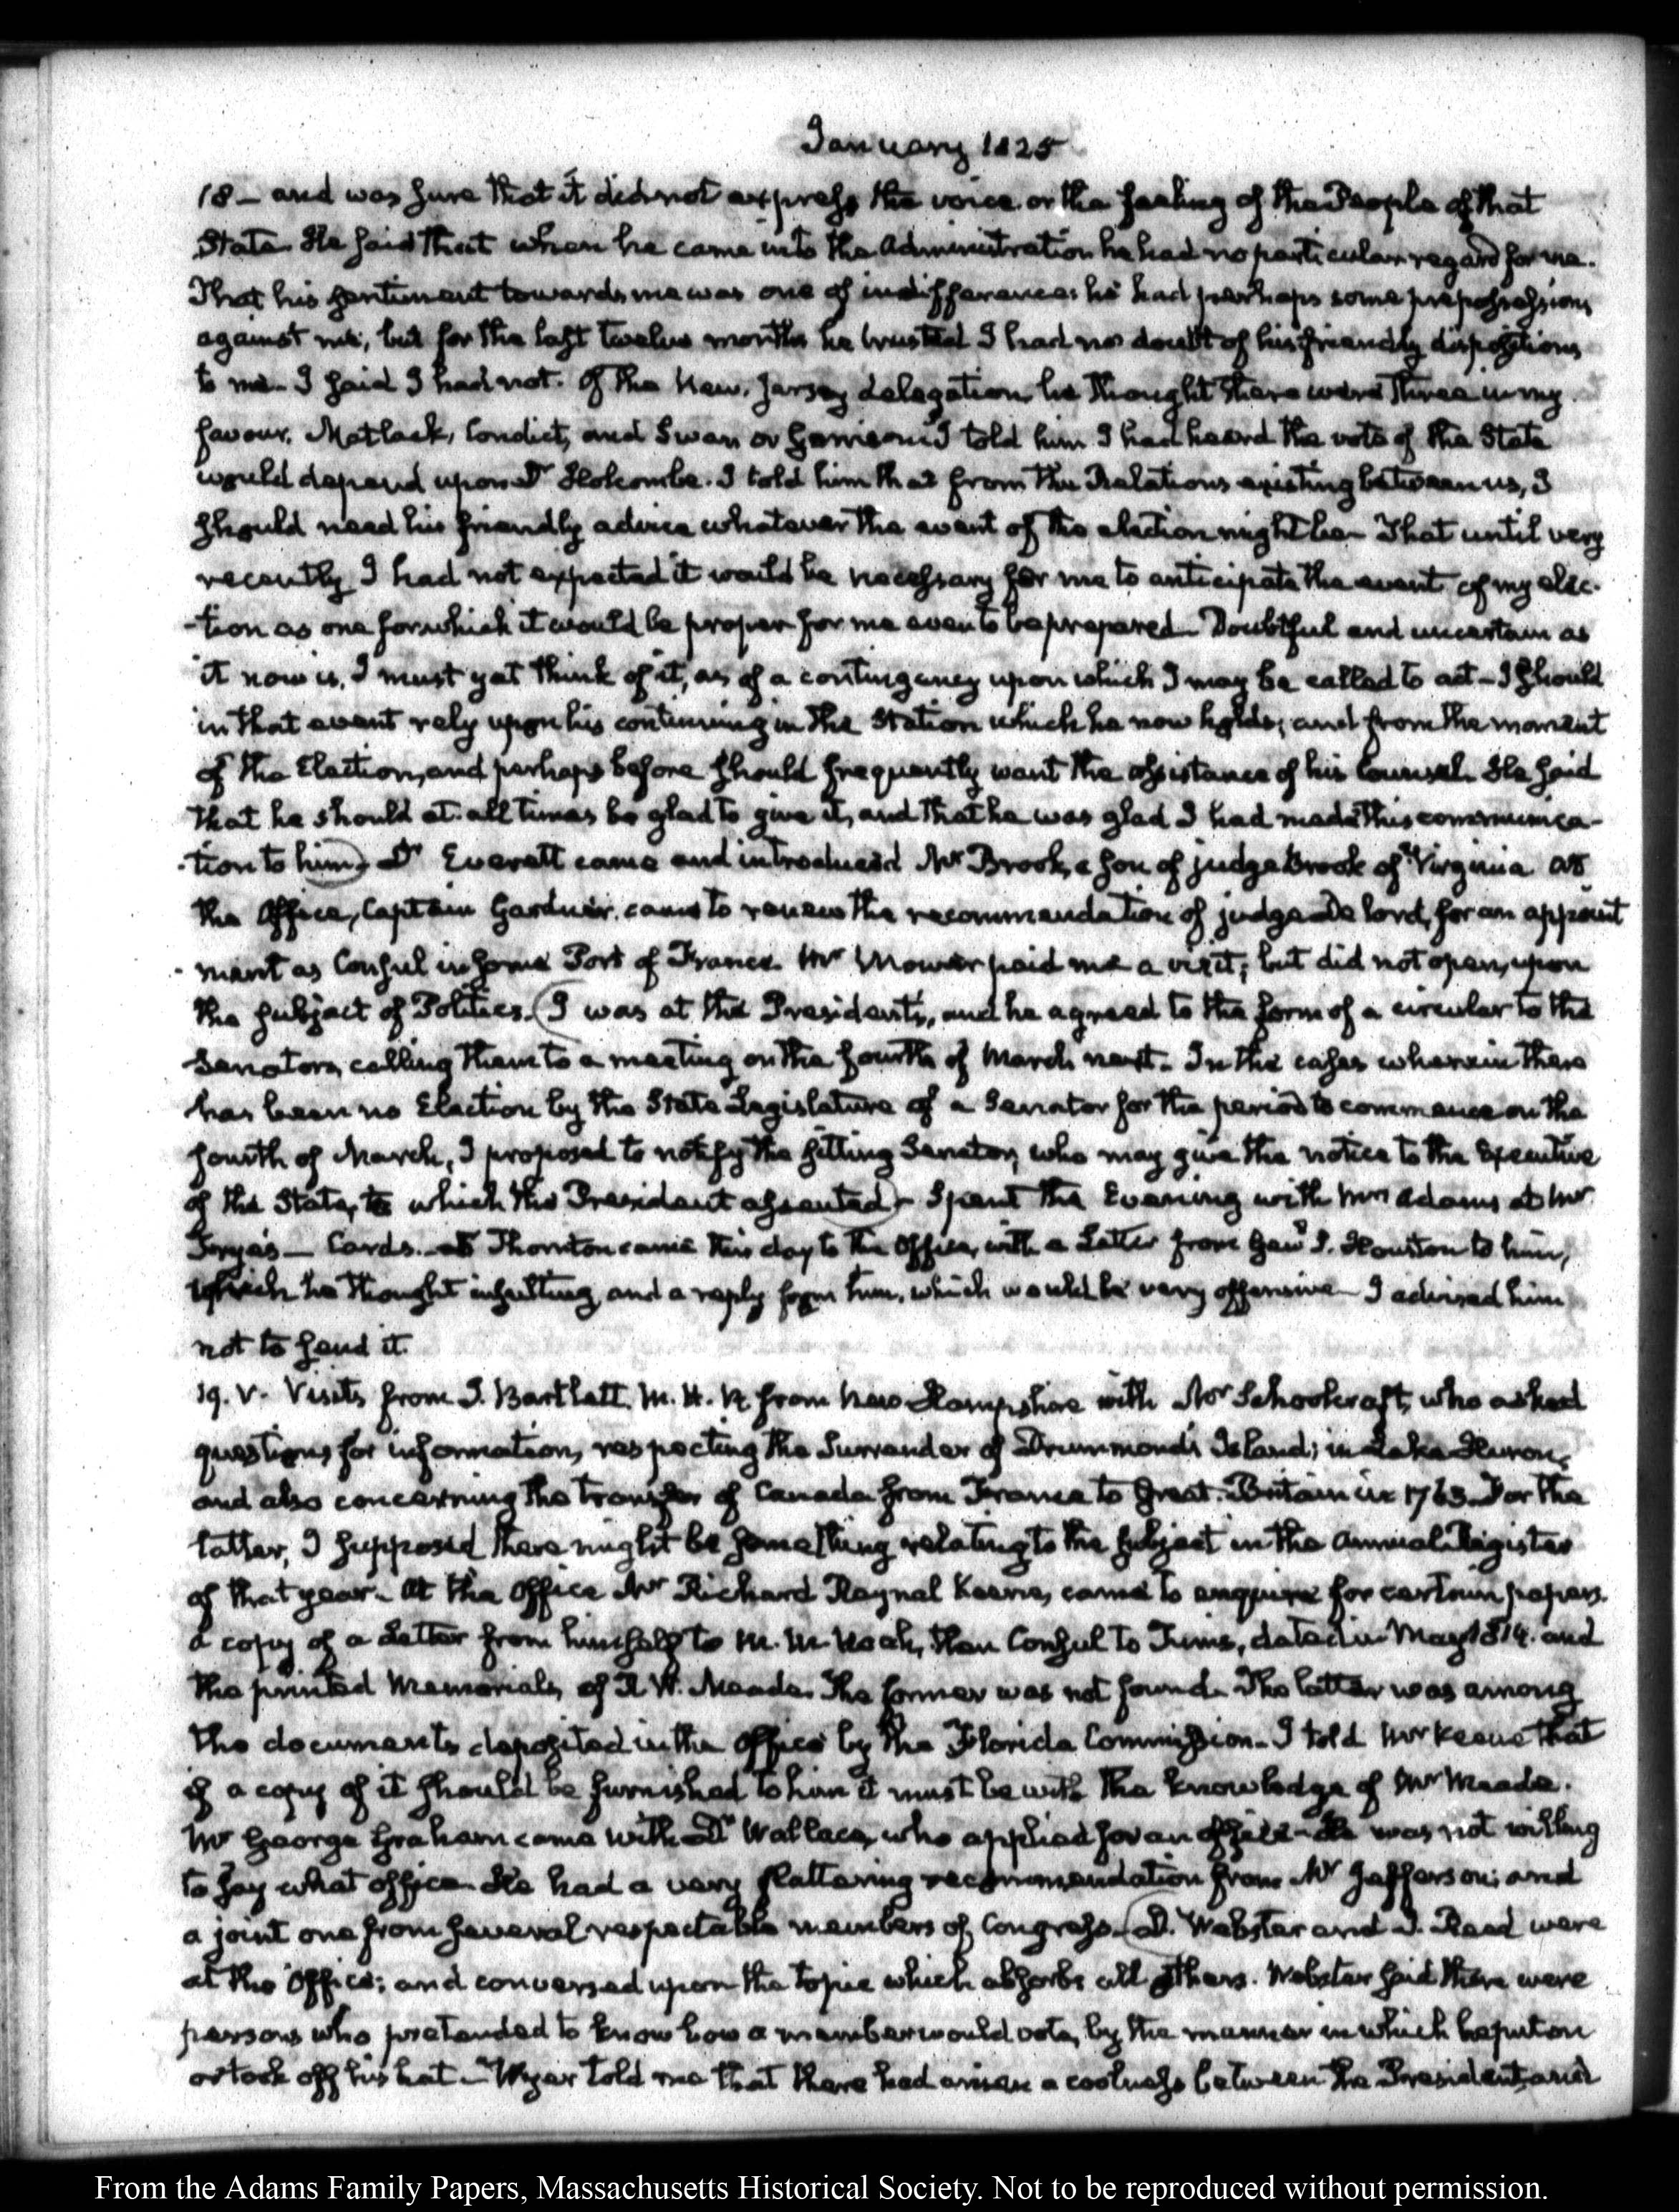 January 1825
18 – and was sure that it did not express the voice or the feeling of the People of that
State. He said that when he came into the Administration he had no particular regard for me.
That his sentiment towards me was one of indifference: he had perhaps some prepossessions
against me, but for the last twelve months he trusted I had no doubt of his friendly dispositions
to me – I said I had not. Of the New Jersey delegation, he thought there were three in my
favour. Matlack, Condict, and Swan or Garrison. I told him I had heard the vote of the State
would depend upon Dr Holcombe. I told him that from the Relations existing between us, I
should need his friendly advice whatever the event of the election might be – That until very
recently I had not expected it would be necessary for me to anticipate the event of my elec-
-tion as one for which it would be proper for me even to be prepared – Doubtful and uncertain as
it now is, I must yet think of it, as of a contingency upon which I may be called to act – I should
in that event rely upon his continuing in the Station which he now holds; and from the moment
of the Election, and perhaps before should frequently want the assistance of his Counsel. He said
that he should at all times be glad to give it, and that he was glad I had made this communica-
-tion to him) – Dr Everett came and introduced Mr Brook, a son of judge Brook of Virginia. At
the Office, Captain Gardner came to renew the recommendation of judge De Lord, for an appoint
-ment as Consul in some Port of France. Mr Mower paid me a visit; but did not open, upon
the subject of Politics. (I was at the President's, and he agreed to the form of a circular to the
Senators, calling them to a meeting on the fourth of March next – In the cases wherein there
has been no Election by the State Legislature of a Senator for the period to commence on the
fourth of March, I proposed to notify the sitting Senator, who may give the notice to the Executive
of the State, to which the President assented) – Spent the Evening with Mrs Adams at Mr
– Cards. – Dr Thornton came this day to the Office, with a Letter from Genl S. Houston to him,
which he thought insulting, and a reply from him, which would be very offensive – I advised him
not to send it.
19. V. Visits from I. Bartlett, M. H. R. from New Hampshire with Mr Schoolcraft, who asked
questions for information, respecting the Surrender of Drummond's Island; in Lake Huron;
and also concerning the transfer of Canada from France to Great-Britain in 1763. For the
latter, I supposed there might be something relating to the subject in the Annual Register
of that year – At the Office Mr Richard Raynal Keene, came to enquire for certain papers.
a copy of a Letter from himself to M. M. Noah, then Consul to Tunis, dated in May 1814. and
the printed Memorials, of R. W. Meade. The former was not found. The latter was among
the documents deposited in the Office by the Florida Commission – I told Mr Keene that
if a copy of it should be furnished to him it must be with the knowledge of Mr Meade.
Mr George Graham came with Dr Wallace, who applied for an office – He was not willing
to say what office. He had a very flattering recommendation from Mr Jefferson; and
a joint one from several respectable members of Congress – (D. Webster and J. Reed were
at the Office; and conversed upon the topic which absorbs all others. Webster said there were
persons who pretended to know how a member would vote, by the manner in which he put on
or took off his hat – Wyer told me that there had arisen a coolness between the President, and
From the Adams Family Papers, Massachusetts Historical Society. Not to be reproduced without permission.